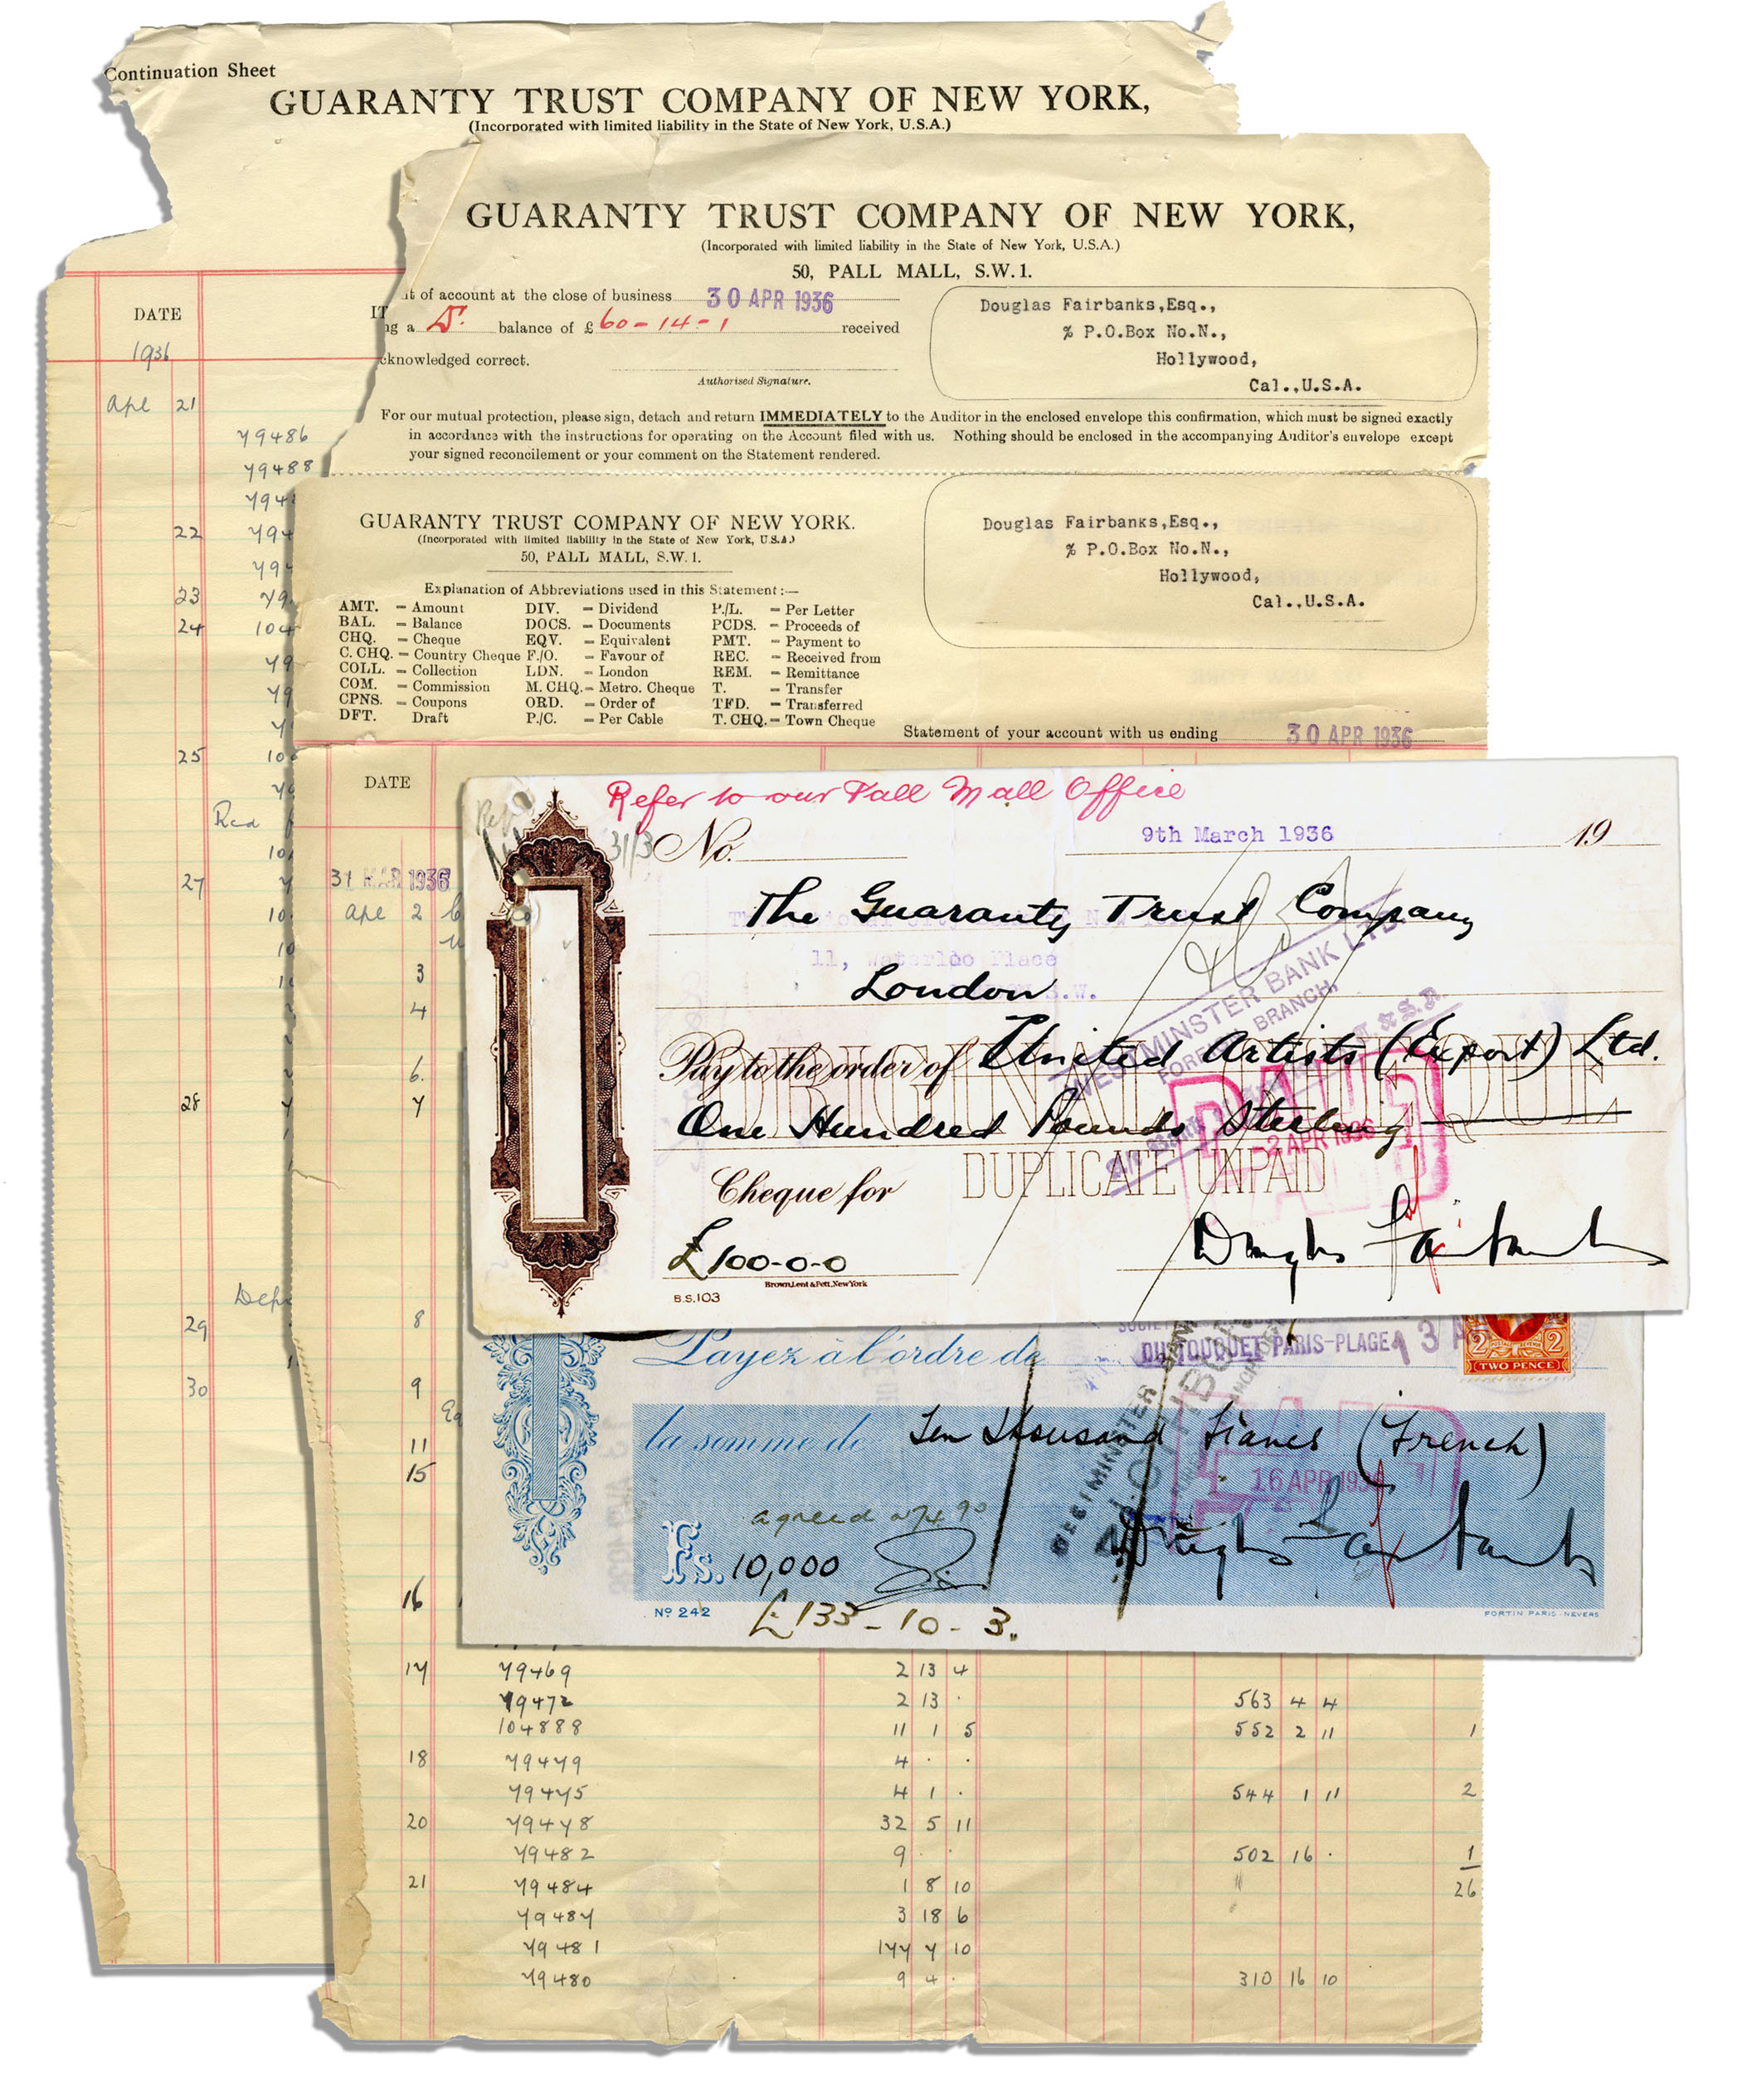 Continuation Sheet
GUARANTY TRUST COMPANY OF NEW YORK,
(Incorporated with limited liability in the State of New York, U.S.A.)
DATE
1936
Apl 21
79486
79488
22
23
24
25
27
28
29
30
GUARANTY TRUST COMPANY OF NEW YORK,
(Incorporated with limited liability in the State of New York, U.S.A.)
50, PALL MALL, S.W.1.
t of account at the close of business 30 APR 1936
g a balance of £ 60-14-1 received
cknowledged correct.
Authorised Signature.
Douglas Fairbanks,Esq.,
% P.O.Box No.N.,
Hollywood,
Cal.,U.S.A.
For our mutual protection, please sign, detach and return IMMEDIATELY to the Auditor in the enclosed envelope this confirmation, which must be signed exactly
in accordance with the instructions for operating on the Account filed with us. Nothing should be enclosed in the accompanying Auditor's envelope except
your signed reconcilement or your comment on the Statement rendered.
GUARANTY TRUST COMPANY OF NEW YORK.
(Incorporated with limited liability in the State of New York, U.S.A.)
50, PALL MALL, S.W.1.
Douglas Fairbanks,Esq.,
% P.O.Box No.N.,
Hollywood,
Cal.,U.S.A.
Explanation of Abbreviations used in this Statement:—
AMT. = Amount DIV. = Dividend P./L. = Per Letter
BAL. = Balance DOCS. = Documents PCDS. = Proceeds of
CHQ. = Cheque EQV. = Equivalent PMT. = Payment to
C. CHQ. = Country Cheque F./O. = Favour of REC. = Received from
COLL. = Collection LDN. = London REM. = Remittance
COM. = Commission M. CHQ. = Metro. Cheque T. = Transfer
CPNS. = Coupons ORD. = Order of TFD. = Transferred
DFT. Draft P./C. = Per Cable T. CHQ. = Town Cheque
Statement of your account with us ending 30 APR 1936
DATE
31 MAR 1936
Apl 2
3
4
6.
7
8
9
11
15
16
Refer to our Pall Mall Office
31/3
No. 9th March 1936 19
The Guaranty Trust Company
11, Waterloo Place
London S.W.
WESTMINSTER BANK LTD.
FOREIGN BRANCH,
Pay to the order of United Artists (Export) Ltd.
ORIGINAL CHEQUE
One Hundred Pounds Sterling
PAID
2 APR 1936
DUPLICATE UNPAID
Cheque for
£100-0-0
Douglas Fairbanks
Brown, Lent & Pett, New York
B.S.103
Payez à l'ordre de
DU TOUQUET PARIS-PLAGE
2 2
TWO PENCE
la somme de Ten Thousand Francs (French)
16 APR 1936
agreed 74 90
Fs. 10,000
Douglas Fairbanks
Nº 242
£133-10-3.
FORTIN PARIS-NEVERS
17 79469 2 13 4
79472 2 13 · 563 4 4
104888 11 1 5 552 2 11 1
18 79479 4 · ·
79475 4 1 · 544 1 11 2
20 79478 32 5 11
79482 9 · · 502 16 · 1
21 79484 1 8 10 26
79487 3 18 6
79481 177 7 10
79480 9 4 · 310 16 10